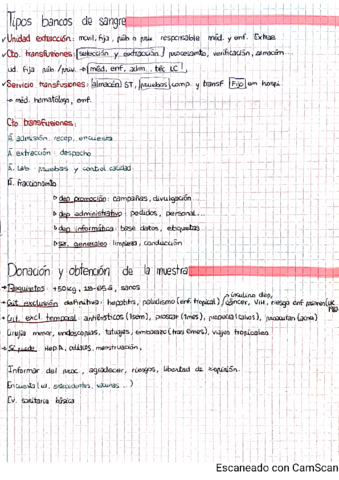 Tipos bancos de sangre
✓Unidad extracción: movil, fija, púb o priv responsable méd. y enf. Extrae
✓Cto. transfusiones: selección y extracción, procesamto, verificación, almacén...
ud. fija púb/priv. → méd, enf, adm., téc LC
✓Servicio transfusiones: almacén ST, pruebas comp. y transf. Fijo en hospi
→ méd. hematólogo, enf.
Cto transfusiones:
Á. admisión: recep, encuesta
Á. extracción: despacho
Á. Lab: pruebas y control calidad
Á. fraccionamto
dep promoción: campañas, divulgación...
dep administrativo: pedidos, personal...
dep informática: base datos, etiquetas
ser. generales: limpieza, conducción
Donación y obtención de la muestra
→ Requisitos: +50Kg, 18-65a, sanos
insulina dep,
→ Crit. exclusión definitivo: hepatitis, paludismo (enf. tropical), cáncer, VIH, riesgo enf
→ Crit. excl temporal: antibióticos (1sem), proscar (1mes), propecia (calvos), roacutan (acné)
Cirugía menor, endoscopias, tatuajes, embarazo (tras 6mes), viajes tropicales
→ Si puede: Hep A, diabetes, menstruación,
Informar del proc., agradecer, riesgos, libertad de
Encuesta (ud, antecedentes, vacunas...)
Ev. sanitaria básica
Escaneado con CamScan